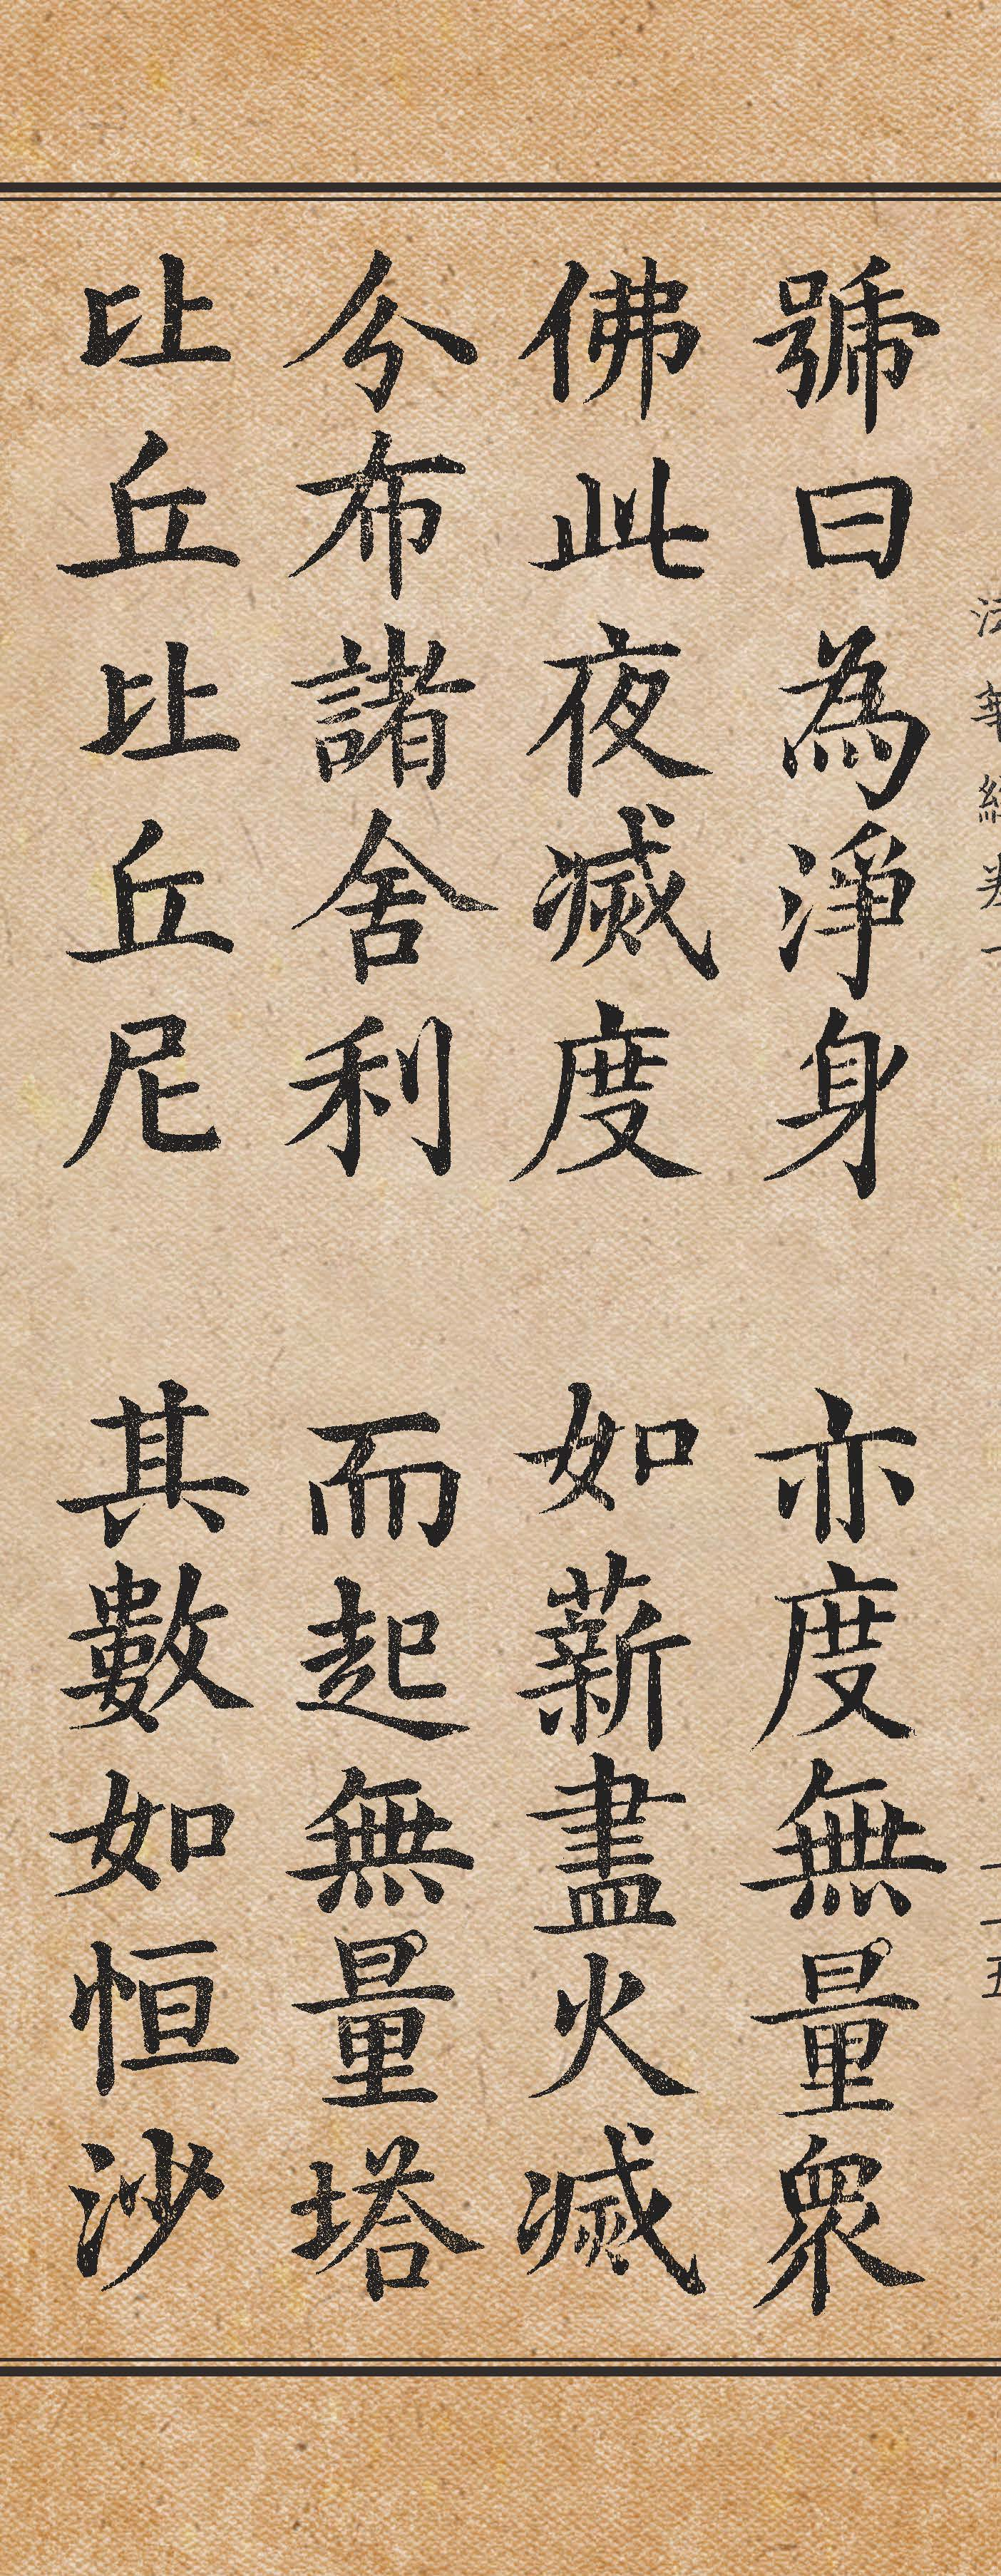 法華經卷一
二十五
號曰為淨身 亦度無量眾
佛此夜滅度 如薪盡火滅
分布諸舍利 而起無量塔
比丘比丘尼 其數如恒沙